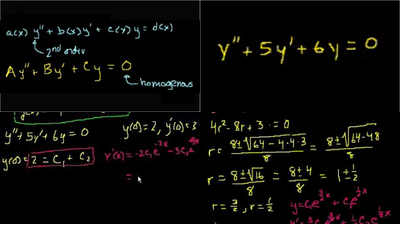 a(x) y'' + b(x) y' + c(x) y = d(x)
2nd order
Ay'' + By' + Cy = 0
homogenous
y'' + 5y' + 6y = 0
y'' + 5y' + 6y = 0
y(0) = 2, y'(0) = 3
y(0) = 2 = C₁ + C₂
y'(x) = -2C₁e^(-2x) - 3C₂e^(-3x)
=
4r² - 8r + 3 = 0
r = (8 ± √(64 - 4·4·3))/8 = (8 ± √(64-48))/8
r = (8 ± √16)/8 = (8 ± 4)/8 = 1 ± 1/2
r = 3/2, r = 1/2
y = C₁e^(3/2 x) + C₂e^(1/2 x)